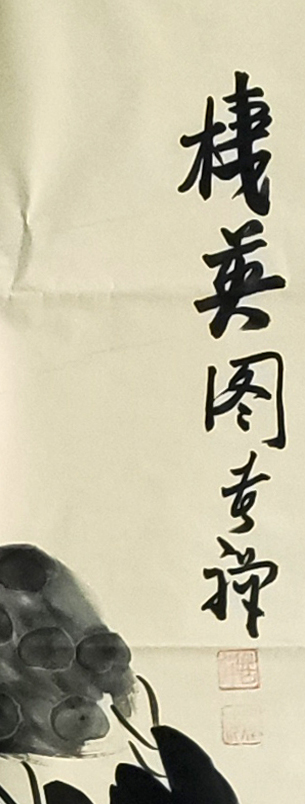 棲英图苦禅